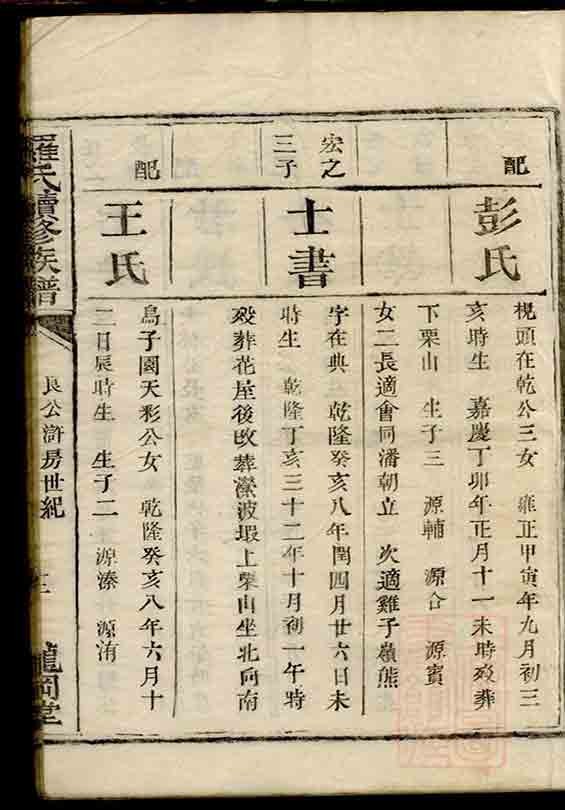 配
彭氏
梘頭在乾公三女 雍正甲寅年九月初三
亥時生 嘉慶丁卯年正月十一未時歿葬
下栗山 生子三 源輔 源合 源賓
女二長適會同潘朝立 次適雞子嶺熊
宏之
三子
士書
字在典 乾隆癸亥八年閏四月廿六日未
時生 乾隆丁亥三十二年十月初一午時
歿葬花屋後改葬瀠波塅上栗山坐北向南
配
王氏
鳥子園天彩公女 乾隆癸亥八年六月十
二日辰時生 生子二 源溱 源洧
羅氏續修族譜
良公滸房世紀
龍岡堂